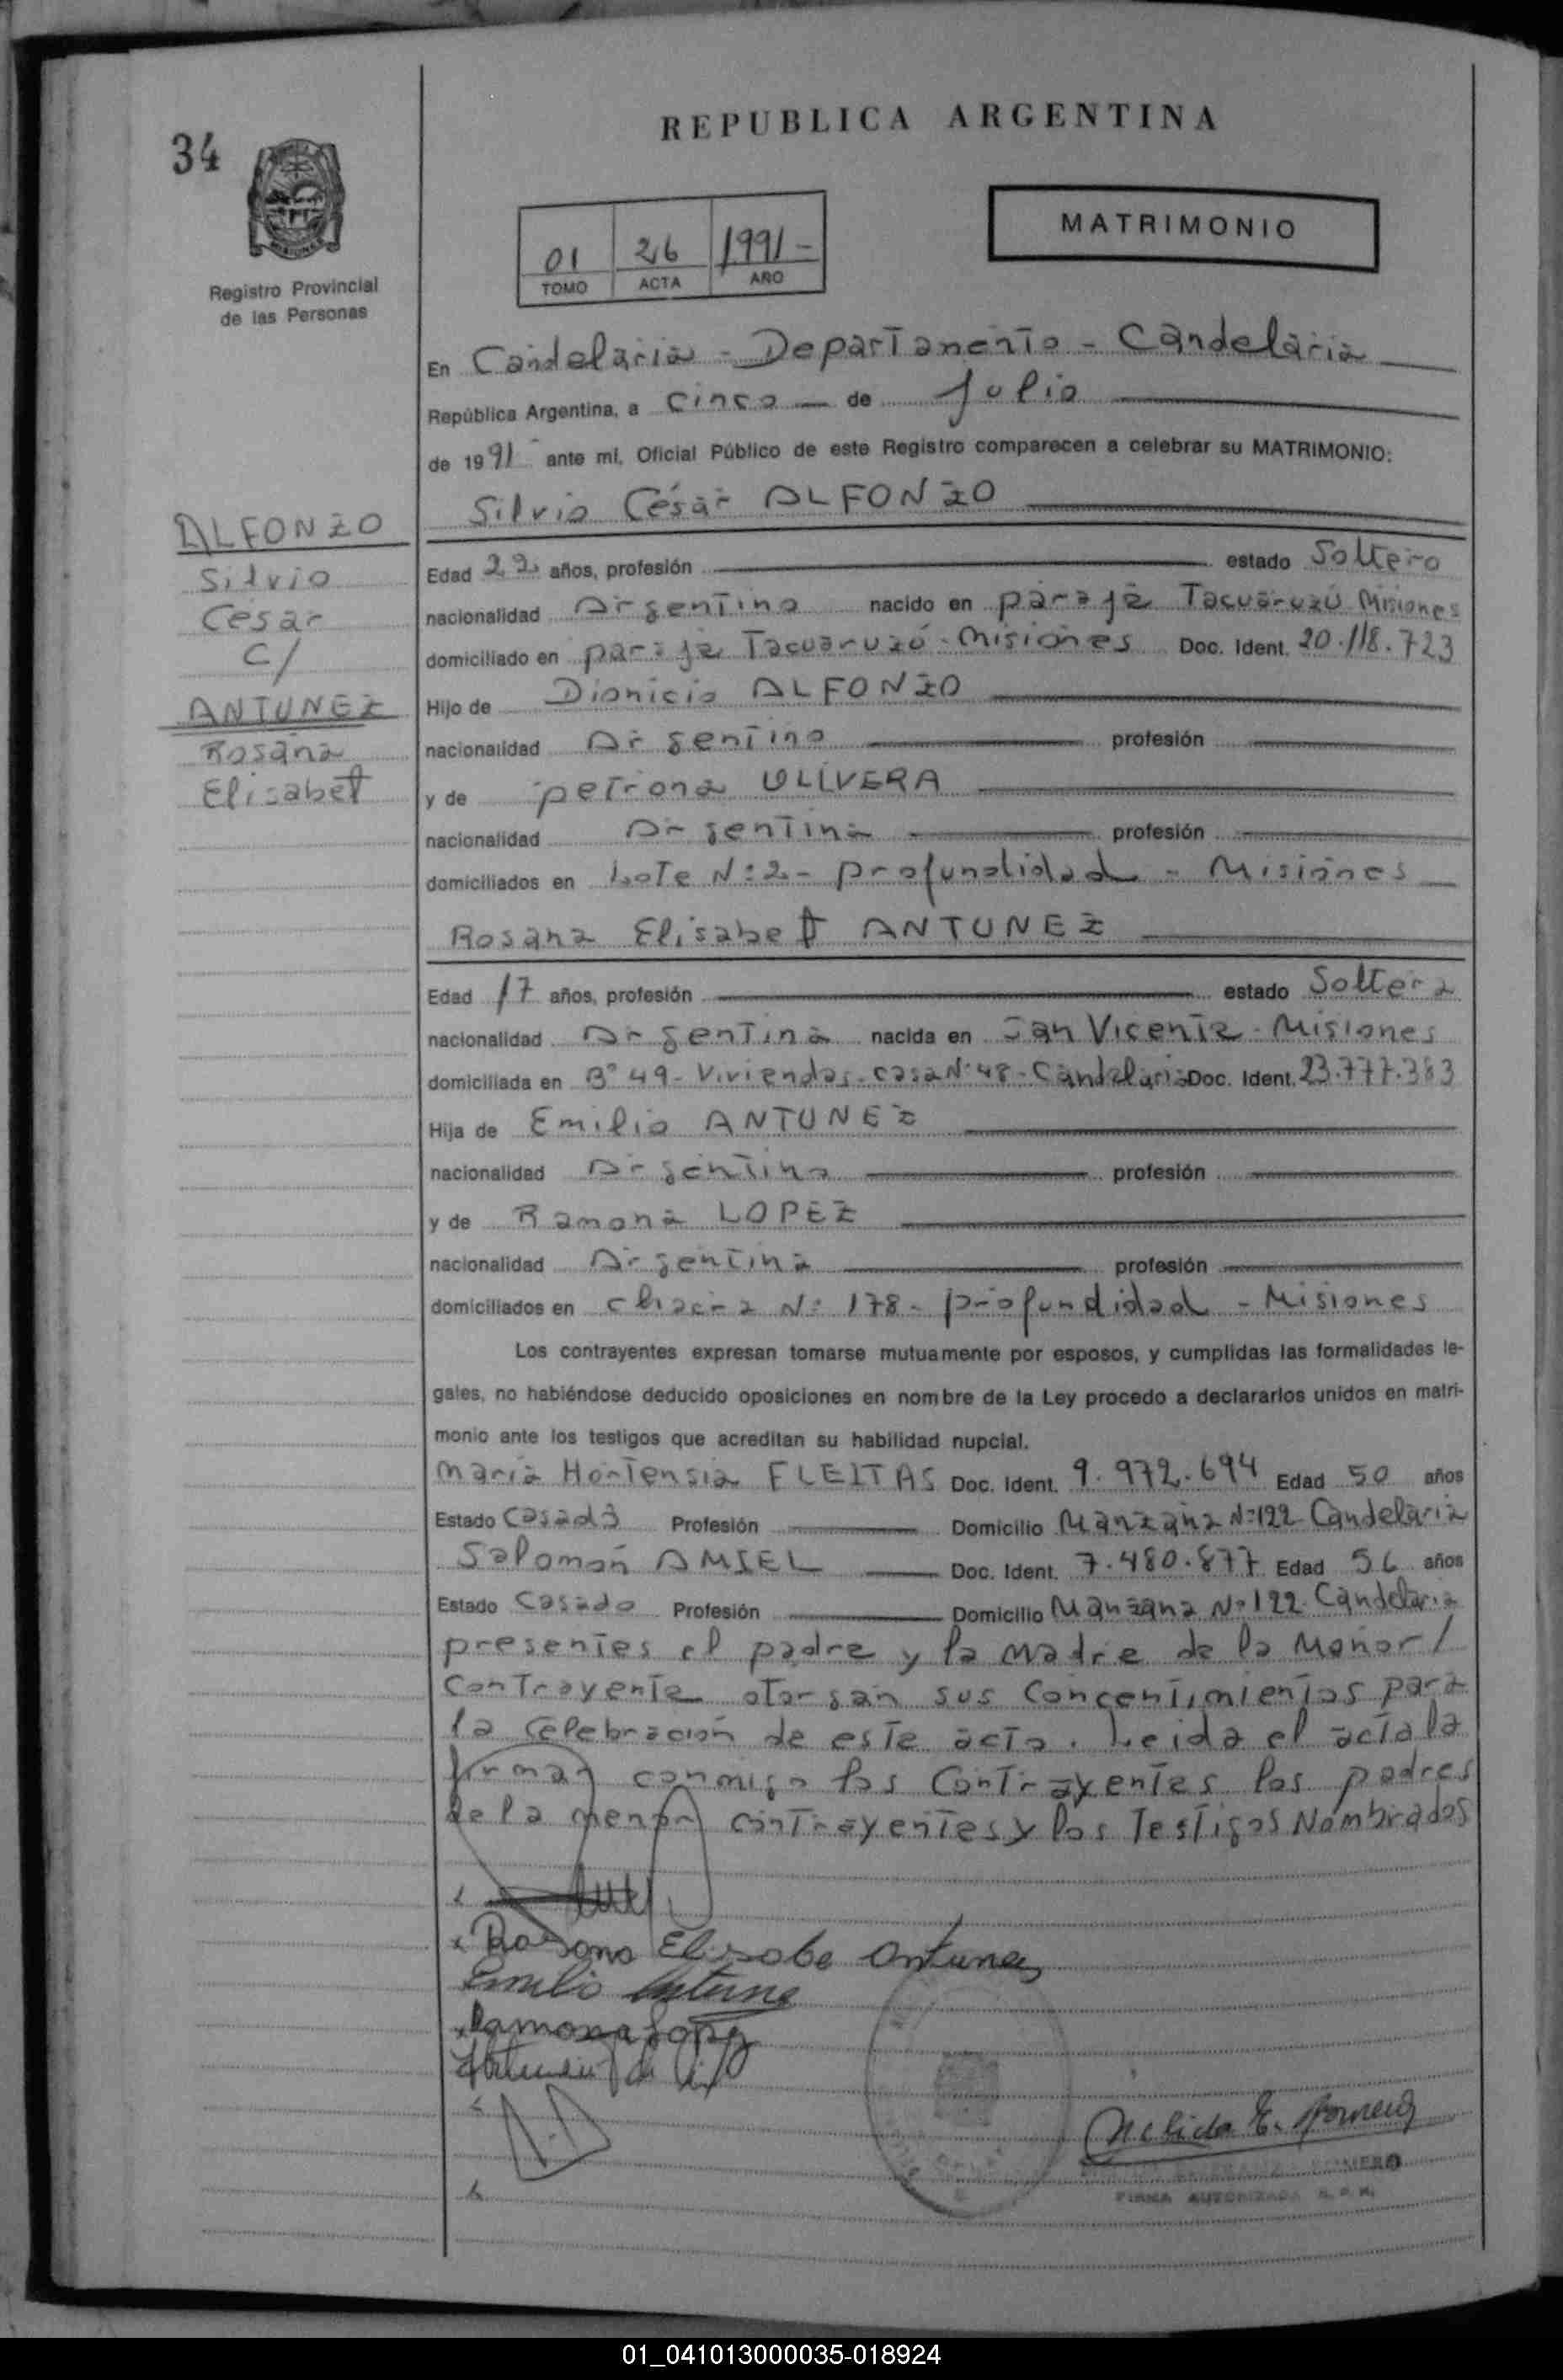 REPUBLICA ARGENTINA
34
MATRIMONIO
01 26 1991-
TOMO ACTA AÑO
Registro Provincial
de las Personas
En Candelaria - Departamento - Candelaria
República Argentina, a cinco de Julio
de 1991 ante mí, Oficial Público de este Registro comparecen a celebrar su MATRIMONIO:
Silvio César ALFONZO
ALFONZO
Silvio
César
C/
ANTUNEZ
Rosana
Elisabet
Edad 22 años, profesión estado Soltero
nacionalidad Argentino nacido en paraje Tacuaruzú Misiones
domiciliado en paraje Tacuaruzú - Misiones Doc. Ident. 20.118.723
Hijo de Dionicio ALFONZO
nacionalidad Argentino profesión
y de petrona OLIVERA
nacionalidad Argentina profesión
domiciliados en Lote N:2 - profundidad - Misiones
Rosana Elisabet ANTUNEZ
Edad 17 años, profesión estado Soltera
nacionalidad Argentina nacida en San Vicente - Misiones
domiciliada en B° 49 - Viviendas - casa N: 48 - Candelaria Doc. Ident. 23.777.383
Hija de Emilio ANTUNEZ
nacionalidad Argentino profesión
y de Ramona LOPEZ
nacionalidad Argentina profesión
domiciliados en chacra N: 178 - profundidad - Misiones
Los contrayentes expresan tomarse mutuamente por esposos, y cumplidas las formalidades le-
gales, no habiéndose deducido oposiciones en nombre de la Ley procedo a declararlos unidos en matri-
monio ante los testigos que acreditan su habilidad nupcial.
María Hortensia FLEITAS Doc. Ident. 9.972.694 Edad 50 años
Estado Casada Profesión Domicilio Manzana N:122 Candelaria
Salomón AMSEL Doc. Ident. 7.480.877 Edad 56 años
Estado Casado Profesión Domicilio Manzana N:122 Candelaria
presentes el padre y la Madre de la Menor /
Contrayente otorgan sus Concentimientos para
la celebración de este acto. Leida el acta la
firman conmigo los Contrayentes los padres
de la menor contrayentes y los Testigos Nombrados
Rosana Elisabe Antunez
Emilio Antune
Ramona Lopez
Nelida E. Romero
ROMERO
FIRMA AUTORIZADA R. P. P.
01_041013000035-018924